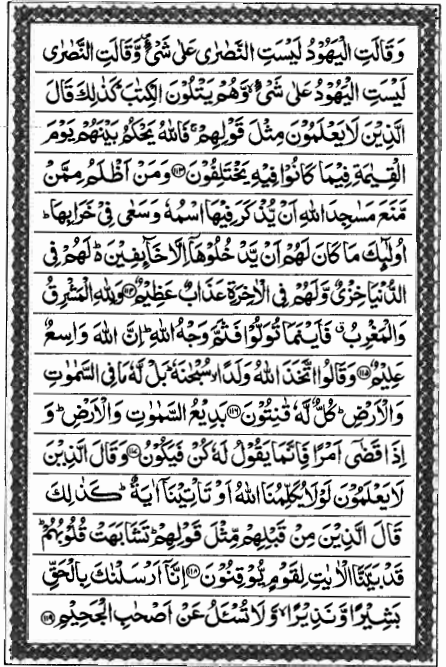 وَقَالَتِ الْیَهُوْدُ لَیْسَتِ النَّصٰرٰی عَلٰی شَیْءٍ ۪ وَّقَالَتِ النَّصٰرٰی
لَیْسَتِ الْیَهُوْدُ عَلٰی شَیْءٍ ۙ وَّهُمْ یَتْلُوْنَ الْكِتٰبَ ؕ كَذٰلِكَ قَالَ
الَّذِیْنَ لَا یَعْلَمُوْنَ مِثْلَ قَوْلِهِمْ ۚ فَاللهُ یَحْكُمُ بَیْنَهُمْ یَوْمَ
الْقِیٰمَةِ فِیْمَا كَانُوْا فِیْهِ یَخْتَلِفُوْنَ ﴿۱۱۳﴾ وَمَنْ اَظْلَمُ مِمَّنْ
مَّنَعَ مَسٰجِدَ اللهِ اَنْ یُّذْكَرَ فِیْهَا اسْمُهٗ وَسَعٰی فِیْ خَرَابِهَا ؕ
اُولٰٓئِكَ مَا كَانَ لَهُمْ اَنْ یَّدْخُلُوْهَاۤ اِلَّا خَآئِفِیْنَ ؕ لَهُمْ فِی
الدُّنْیَا خِزْیٌ وَّلَهُمْ فِی الْاٰخِرَةِ عَذَابٌ عَظِیْمٌ ﴿۱۱۴﴾ وَلِلّٰهِ الْمَشْرِقُ
وَالْمَغْرِبُ ۗ فَاَیْنَمَا تُوَلُّوْا فَثَمَّ وَجْهُ اللهِ ؕ اِنَّ اللهَ وَاسِعٌ
عَلِیْمٌ ﴿۱۱۵﴾ وَقَالُوا اتَّخَذَ اللهُ وَلَدًا ۙ سُبْحٰنَهٗ ؕ بَلْ لَّهٗ مَا فِی السَّمٰوٰتِ
وَالْاَرْضِ ؕ كُلٌّ لَّهٗ قٰنِتُوْنَ ﴿۱۱۶﴾ بَدِیْعُ السَّمٰوٰتِ وَالْاَرْضِ ؕ وَ
اِذَا قَضٰۤی اَمْرًا فَاِنَّمَا یَقُوْلُ لَهٗ كُنْ فَیَكُوْنُ ﴿۱۱۷﴾ وَقَالَ الَّذِیْنَ
لَا یَعْلَمُوْنَ لَوْلَا یُكَلِّمُنَا اللهُ اَوْ تَاْتِیْنَاۤ اٰیَةٌ ؕ كَذٰلِكَ
قَالَ الَّذِیْنَ مِنْ قَبْلِهِمْ مِّثْلَ قَوْلِهِمْ ؕ تَشَابَهَتْ قُلُوْبُهُمْ ؕ
قَدْ بَیَّنَّا الْاٰیٰتِ لِقَوْمٍ یُّوْقِنُوْنَ ﴿۱۱۸﴾ اِنَّاۤ اَرْسَلْنٰكَ بِالْحَقِّ
بَشِیْرًا وَّنَذِیْرًا ۙ وَّلَا تُسْـَٔلُ عَنْ اَصْحٰبِ الْجَحِیْمِ ﴿۱۱۹﴾